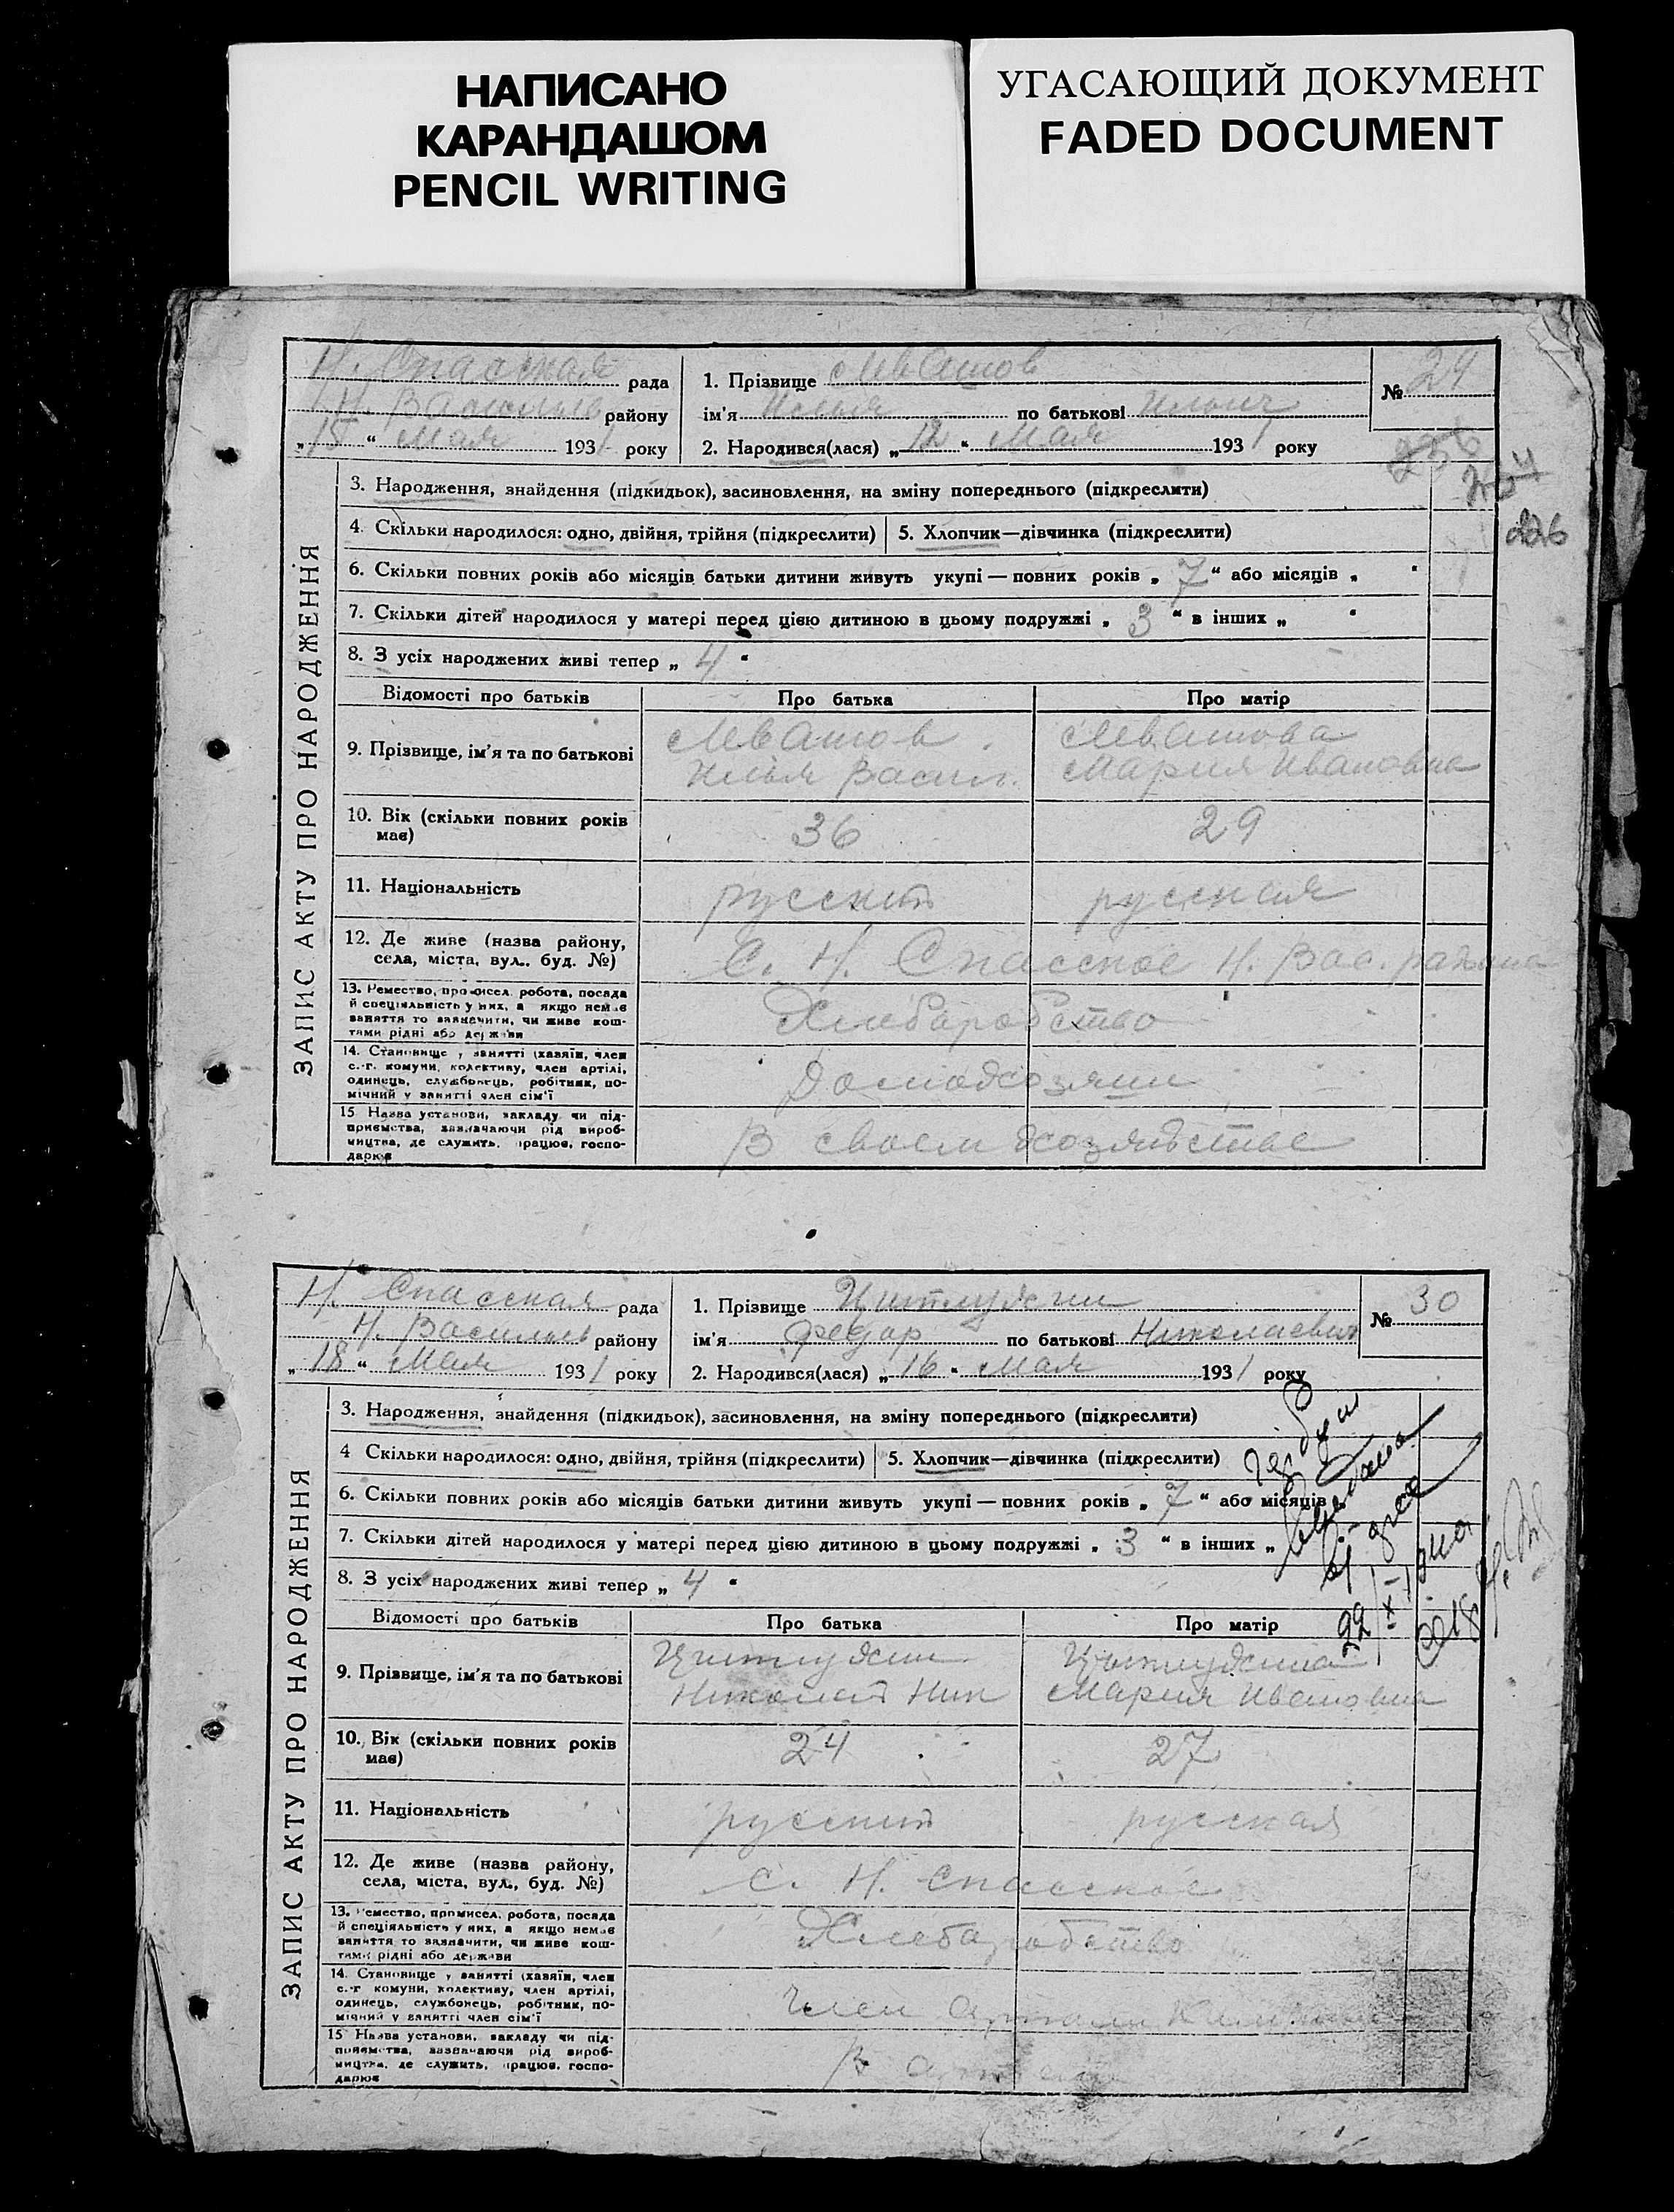 НАПИСАНО
КАРАНДАШОМ
PENCIL WRITING
УГАСАЮЩИЙ ДОКУМЕНТ
FADED DOCUMENT
ЗАПИС АКТУ ПРО НАРОДЖЕННЯ
Н. Спасская рада
Н. Васильев району
„15“ Мая 1931 року
1. Прізвище Ивашов
ім'я Илья по батькові Ильич
2. Народився(лася) „12“ Мая 1931 року
№ 29
236
226
3. Народження, знайдення (підкидьок), засиновлення, на зміну попереднього (підкреслити)
4. Скільки народилося: одно, двійня, трійня (підкреслити) 5. Хлопчик—дівчинка (підкреслити)
6. Скільки повних років або місяців батьки дитини живуть укупі — повних років „ 7 “ або місяців „ “
7. Скільки дітей народилося у матері перед цією дитиною в цьому подружжі „ 3 “ в інших „ “
8. З усіх народжених живі тепер „ 4 “
Відомості про батьків Про батька Про матір
9. Прізвище, ім'я та по батькові Ивашов Илья Васил. Ивашова Мария Ивановна
10. Вік (скільки повних років має) 36 29
11. Національність русский русская
12. Де живе (назва району, села, міста, вул., буд. №) С. Н. Спасское Н. Вас. района
13. Ремество, промисел, робота, посада й спеціяльність у них, а якщо немає заняття то зазначити, чи живе коштами рідні або держави Хлебаробство
14. Становище у занятті (хазяїн, член с.-г. комуни, колективу, член артілі, одинець, службовець, робітник, помічний у занятті член сім'ї Домохозяин
15 Назва установи, закладу чи підприємства, зазначаючи рід виробництва, де служить, працює, господарює В своем хозяйстве
ЗАПИС АКТУ ПРО НАРОДЖЕННЯ
Н. Спасская рада
Н. Васильев району
„18“ Мая 1931 року
1. Прізвище Цитлухин
ім'я Федар по батькові Николаевич
2. Народився(лася) „16“ Мая 1931 року
№ 30
3. Народження, знайдення (підкидьок), засиновлення, на зміну попереднього (підкреслити)
4 Скільки народилося: одно, двійня, трійня (підкреслити) 5. Хлопчик—дівчинка (підкреслити)
6. Скільки повних років або місяців батьки дитини живуть укупі — повних років „ 7 “ або місяців „
7. Скільки дітей народилося у матері перед цією дитиною в цьому подружжі „ 3 “ в інших „
8. З усіх народжених живі тепер „ 4 “
22/XI
Відомості про батьків Про батька Про матір
9. Прізвище, ім'я та по батькові Цитлухин Николай Ник Цитлухина Мария Ивановна
10. Вік (скільки повних років має) 24 27
11. Національність русский русская
12. Де живе (назва району, села, міста, вул., буд. №) С. Н. Спасское
13. Ремество, промисел, робота, посада й спеціяльність у них, а якщо немає заняття то зазначити, чи живе коштами рідні або держави Хлебаробство
14. Становище у занятті (хазяїн, член с.-г. комуни, колективу, член артілі, одинець, службовець, робітник, помічний у занятті член сім'ї член Артели
15 Назва установи, закладу чи підприємства, зазначаючи рід виробництва, де служить, працює, господарює В артели